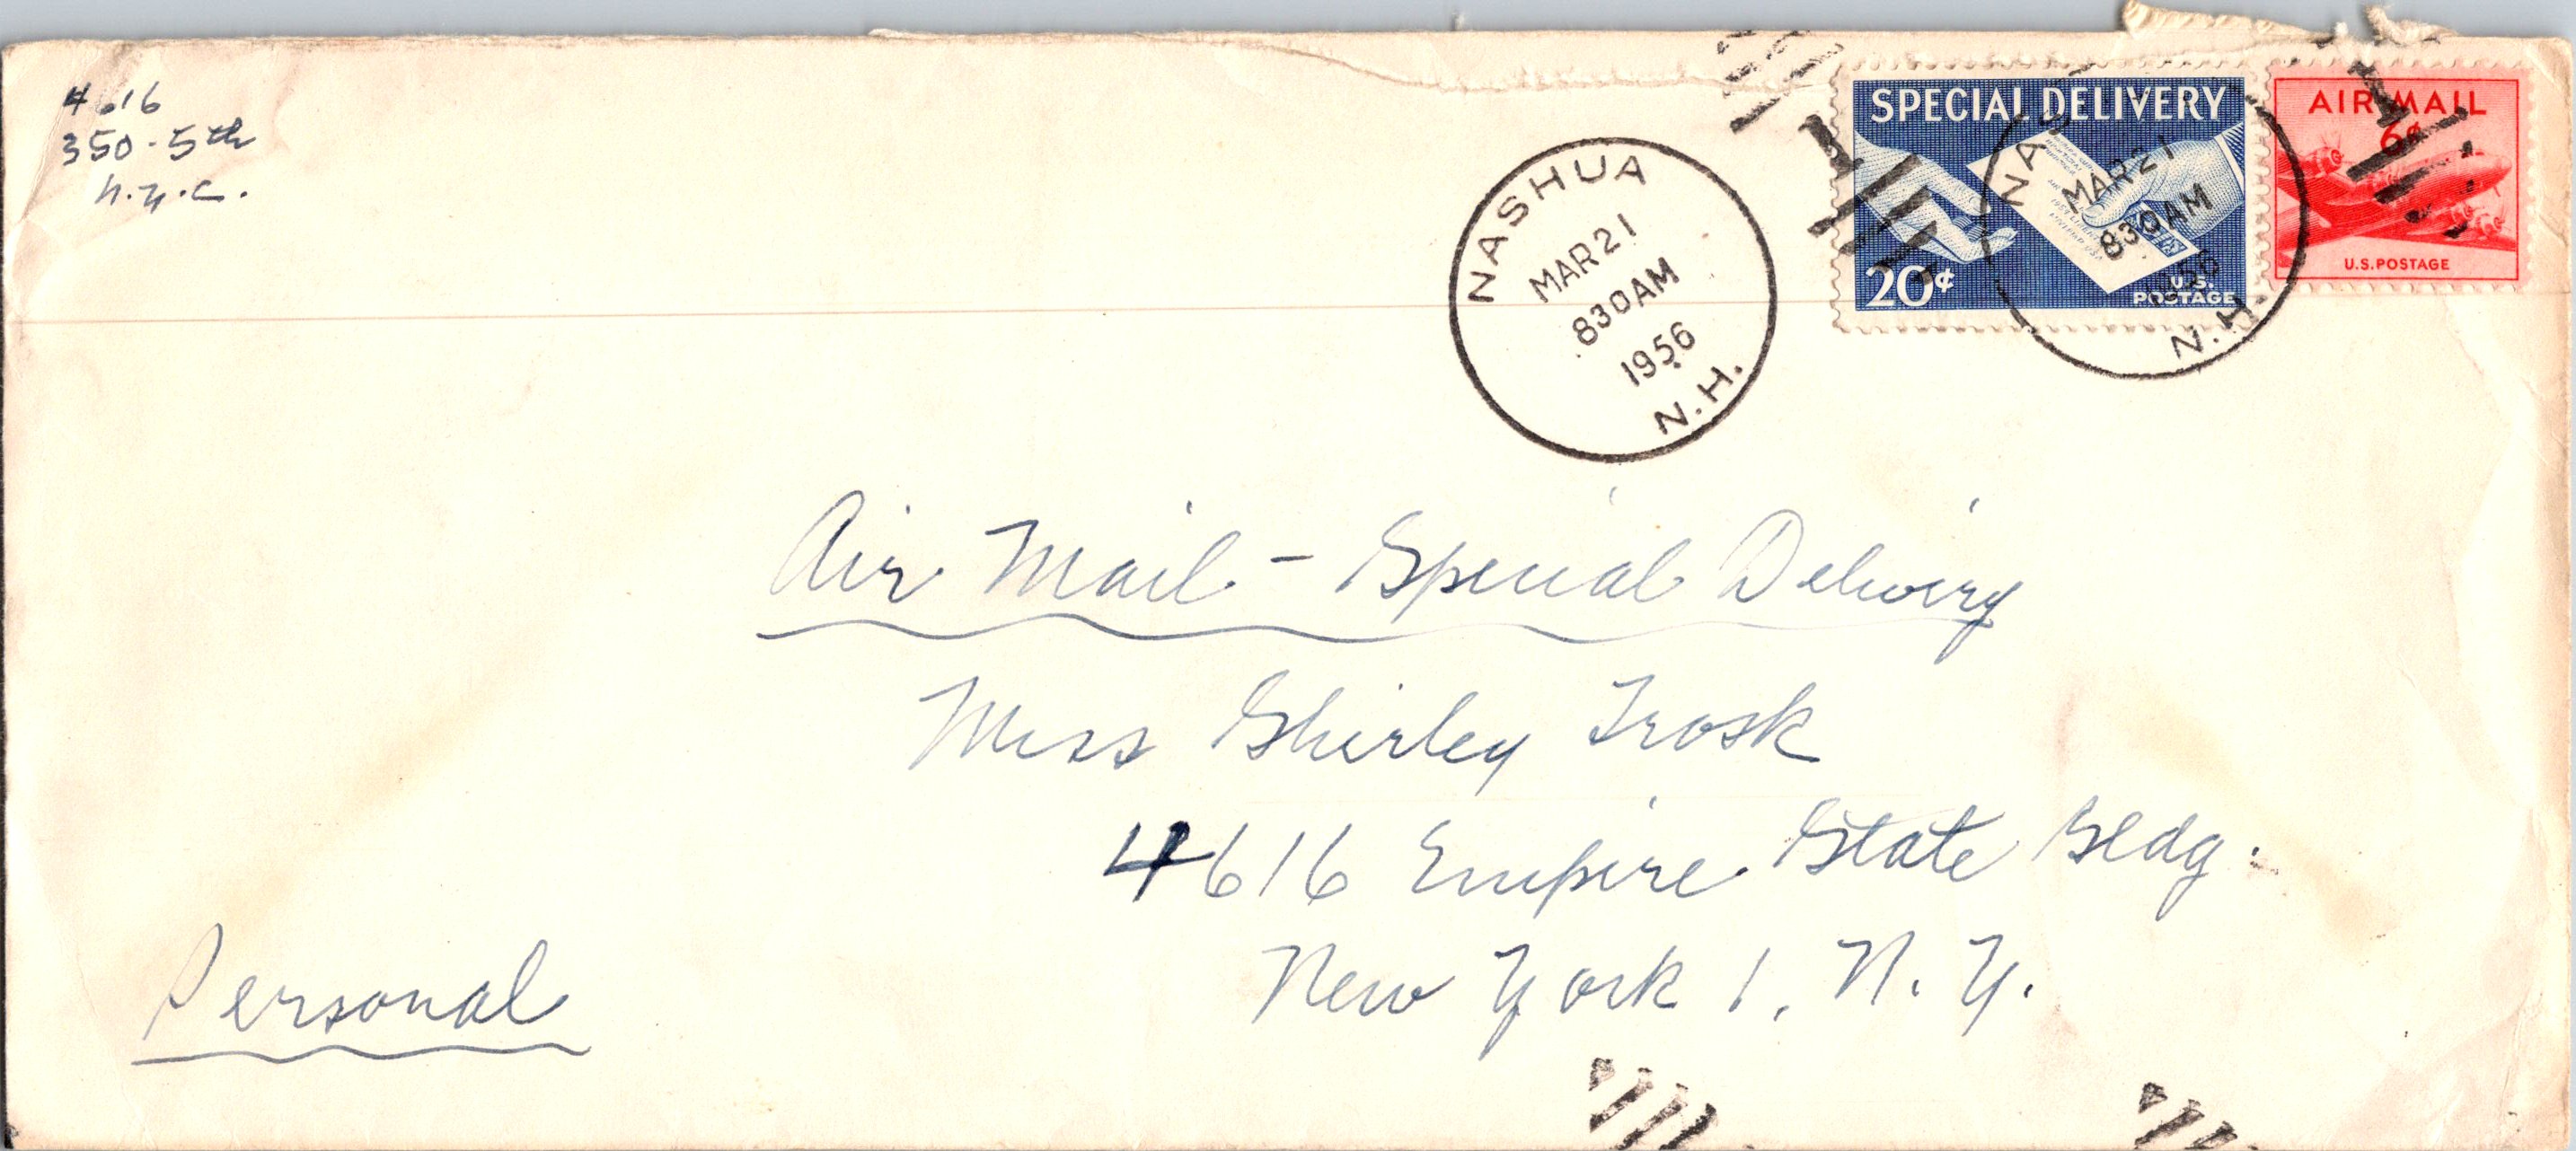 4616
350-5th
N.Y.C.
NASHUA
MAR 21
830AM
1956
N.H.
SPECIAL DELIVERY
20¢
U.S.
POSTAGE
MAR 21
830AM
1956
N.H.
AIR MAIL
6¢
U.S. POSTAGE
Air Mail - Special Delivery
Miss Shirley Trosk
4616 Empire State Bldg.
New York 1, N.Y.
Personal